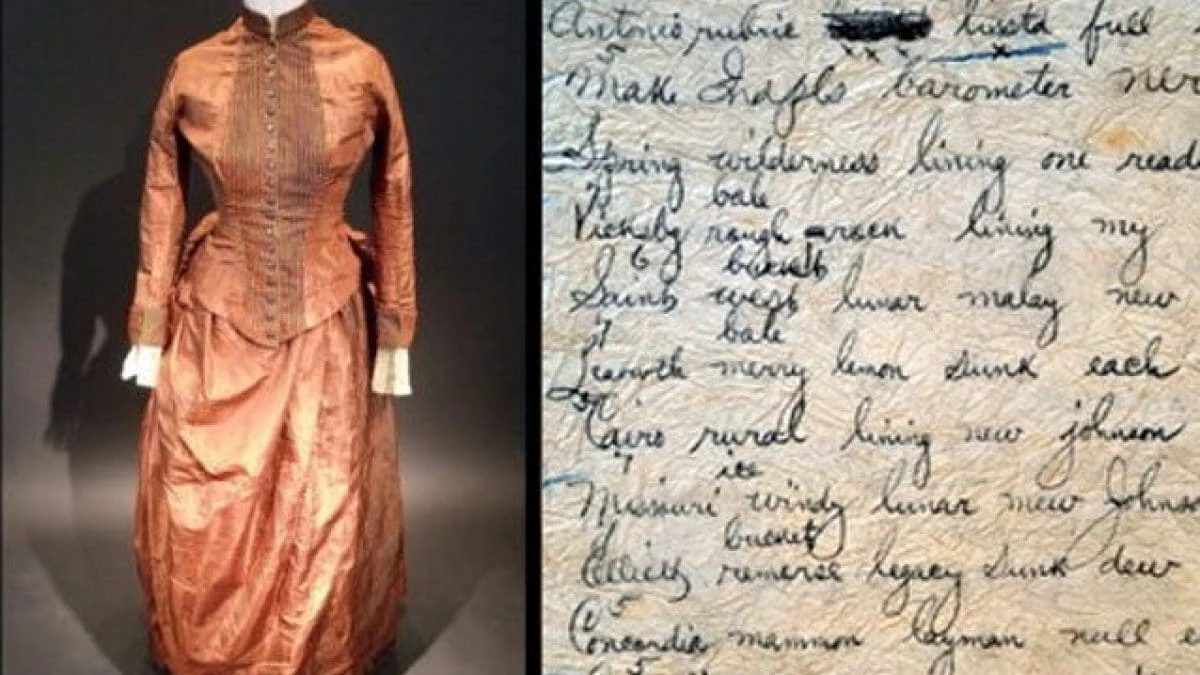 Antonio rubric lissta full
5
Make Indpls barometer ner
Spring wilderness lining one read
bale
Vicksbg rough lining my
6 bucket
Saints west lunar malay new
7 bale
Leavwth merry lemon sunk each
Cairo rural lining new johnson
7 ice
Missouri windy lunar mew Johns
bucket
Elliott remorse legacy sunk dew
5
Concordia mammon layman null e
5